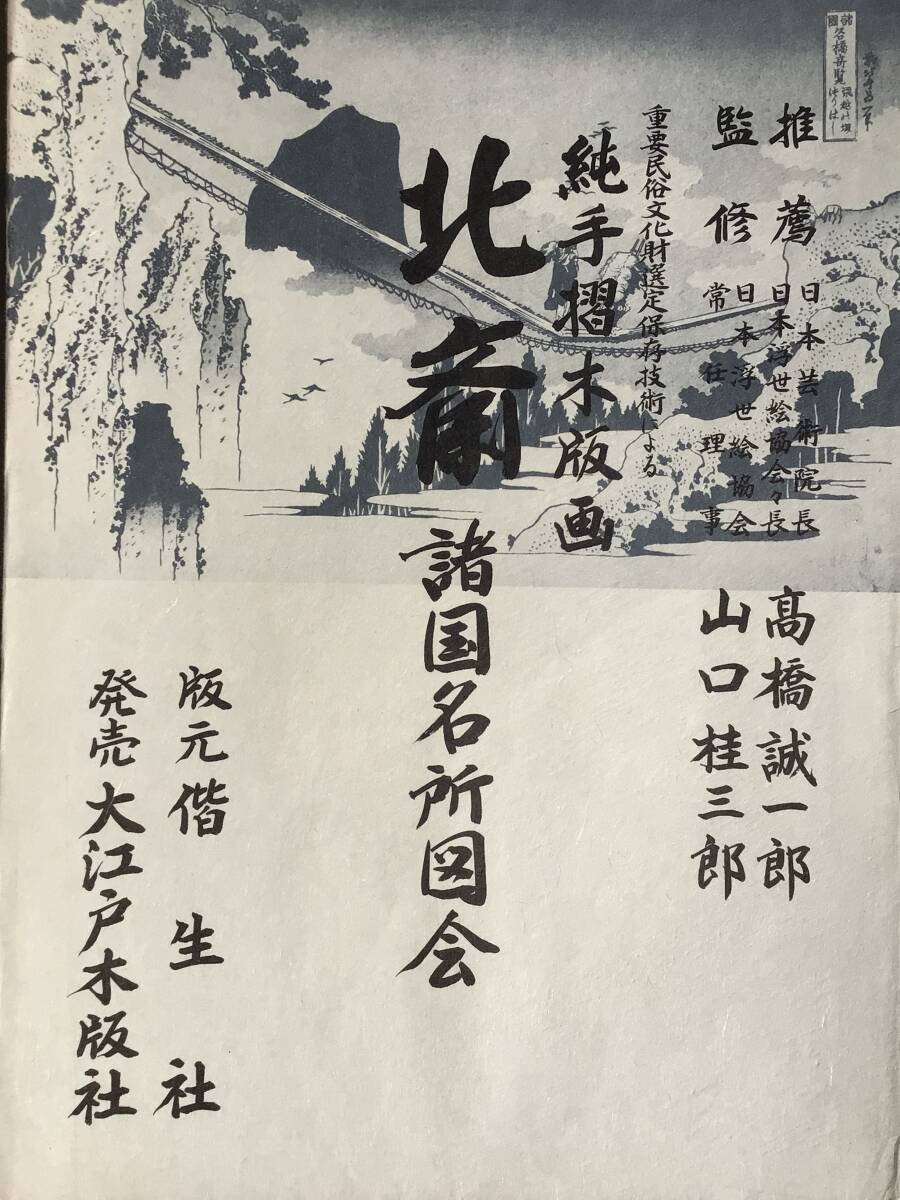 諸國名橋奇覧
飛越の堺
つりはし
推薦
日本芸術院長
日本浮世絵協会々長
高橋誠一郎
監修
日本浮世絵協会
常任理事
山口桂三郎
重要民俗文化財選定保存技術による
純手摺木版画
北斎 諸国名所図会
版元 偕生社
発売 大江戸木版社